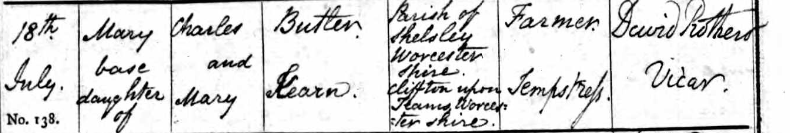 18th
July.
No. 138.
Mary
base
daughter
of
Charles
and
Mary
Butler.
Kearn.
Parish of
Shelsley
Worcester
shire.
Clifton upon
Teams, Worces-
-ter shire.
Farmer.
Sempstress.
David Rothers
Vicar.